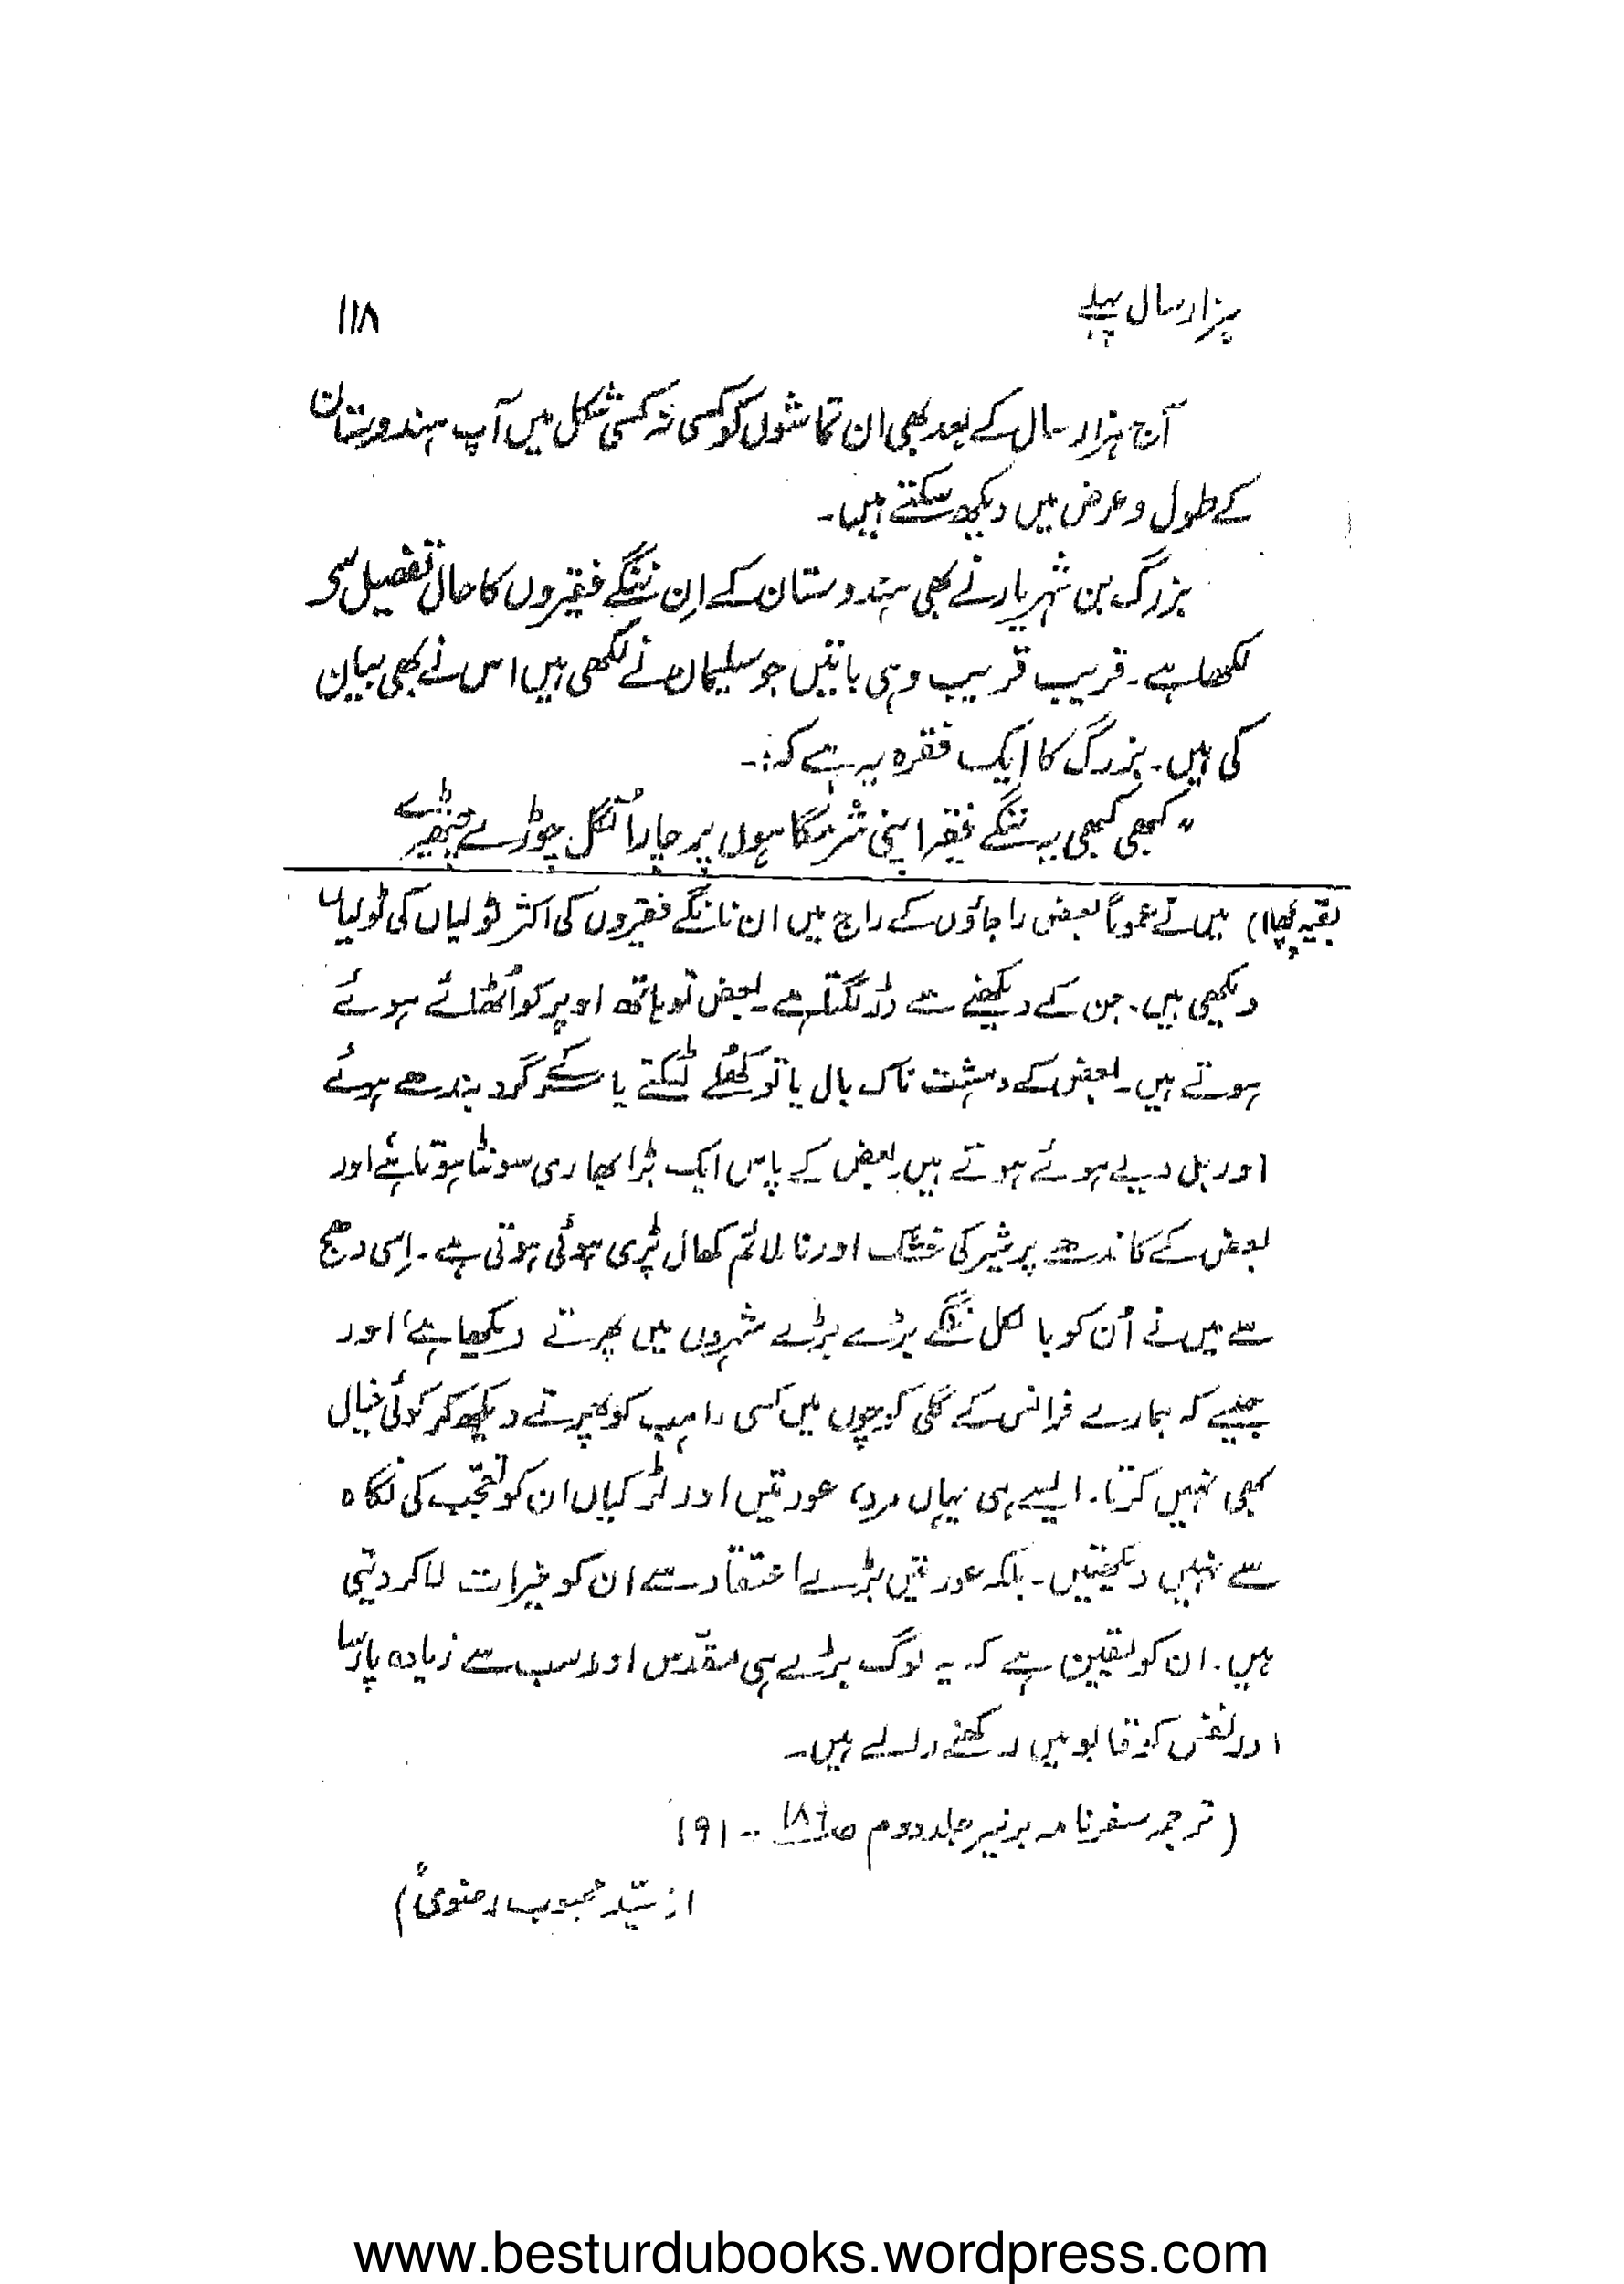 ہزار سال پہلے ۱۱۸
آج ہزار سال کے بعد بھی ان تماشوں کو کسی نہ کسی شکل میں آپ ہندوستان
کے طول و عرض میں دیکھ سکتے ہیں۔
بزرگ بن شہریار نے بھی ہندوستان کے اِن ننگے فقیروں کا حال تفصیل سے
لکھا ہے۔ قریب قریب وہی باتیں جو سلیمان نے لکھی ہیں اس نے بھی بیان
کی ہیں۔ بزرگ کا ایک فقرہ یہ ہے کہ:۔
"کبھی کبھی یہ ننگے فقیر اپنی شرمگاہوں پر چار اُنگل چوڑے چیتھڑے
بقیہ پچھلا) میں نے عموماً بعض راجاؤں کے راج میں ان نانگے فقیروں کی اکثر ٹولیاں کی ٹولیاں
دیکھی ہیں۔ جن کے دیکھنے سے ڈر لگتا ہے۔ بعض تو ہاتھ اوپر کو اُٹھائے ہوئے
ہوتے ہیں۔ بعض کے دہشت ناک بال یا تو کھُلے لٹکتے یا سر کے گرد بندھے ہوئے
اور بل دیے ہوئے ہوتے ہیں۔ بعض کے پاس ایک بڑا بھاری سونٹا ہوتا ہے اور
بعض کے کاندھے پر شیر کی خشک اور ناملائم کھال پڑی ہوئی ہوتی ہے۔ اِسی دھج
سے میں نے اُن کو بالکل ننگے بڑے بڑے شہروں میں پھرتے دیکھا ہے، اور
جیسے کہ ہمارے فرانس کے گلی کوچوں میں کسی راہب کو پھرتے دیکھ کر کوئی خیال
بھی نہیں کرتا۔ ایسے ہی یہاں مرد، عورتیں اور لڑکیاں ان کو تعجّب کی نگاہ
سے نہیں دیکھتیں۔ بلکہ عورتیں بڑے اعتقاد سے ان کو خیرات لا کر دیتی
ہیں۔ ان کو یقین ہے کہ یہ لوگ بڑے ہی مقدّس اور سب سے زیادہ پارسا
اور نفس کو قابو میں رکھنے والے ہیں۔
(ترجمہ سفرنامہ برنیر جلد دوم ص۱۸۶ - ۱۹۱
از سیّد محبوب رضوی)
www.besturdubooks.wordpress.com